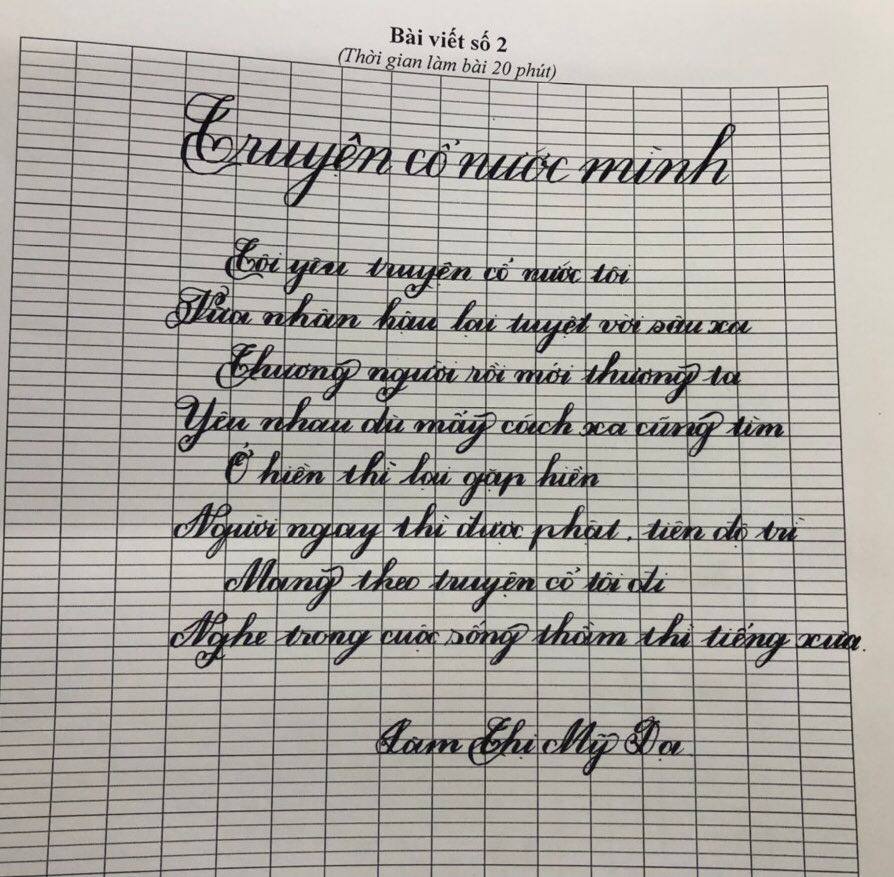 Bài viết số 2
(Thời gian làm bài 20 phút)
Truyện cổ nước mình
Tôi yêu truyện cổ nước tôi
Vừa nhân hậu lại tuyệt vời sâu xa
Thương người rồi mới thương ta
Yêu nhau dù mấy cách xa cũng tìm
Ở hiền thì lại gặp hiền
Người ngay thì được phật, tiên độ trì
Mang theo truyện cổ tôi đi
Nghe trong cuộc sống thầm thì tiếng xưa.
Lâm Thị Mỹ Dạ